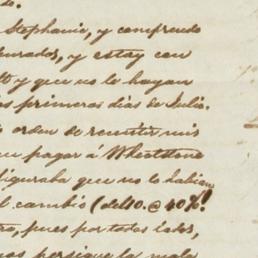 de.
Stephanie, y comprendo
apurados, y estoy con
y que no le hayan
os primeros dias de Julio.
orden de remitir mis
pagar á Wheatstone
figuraba que no le habian
l cambio (del 10. @ 40%!
pues por todos lados,
nos persigue la mala